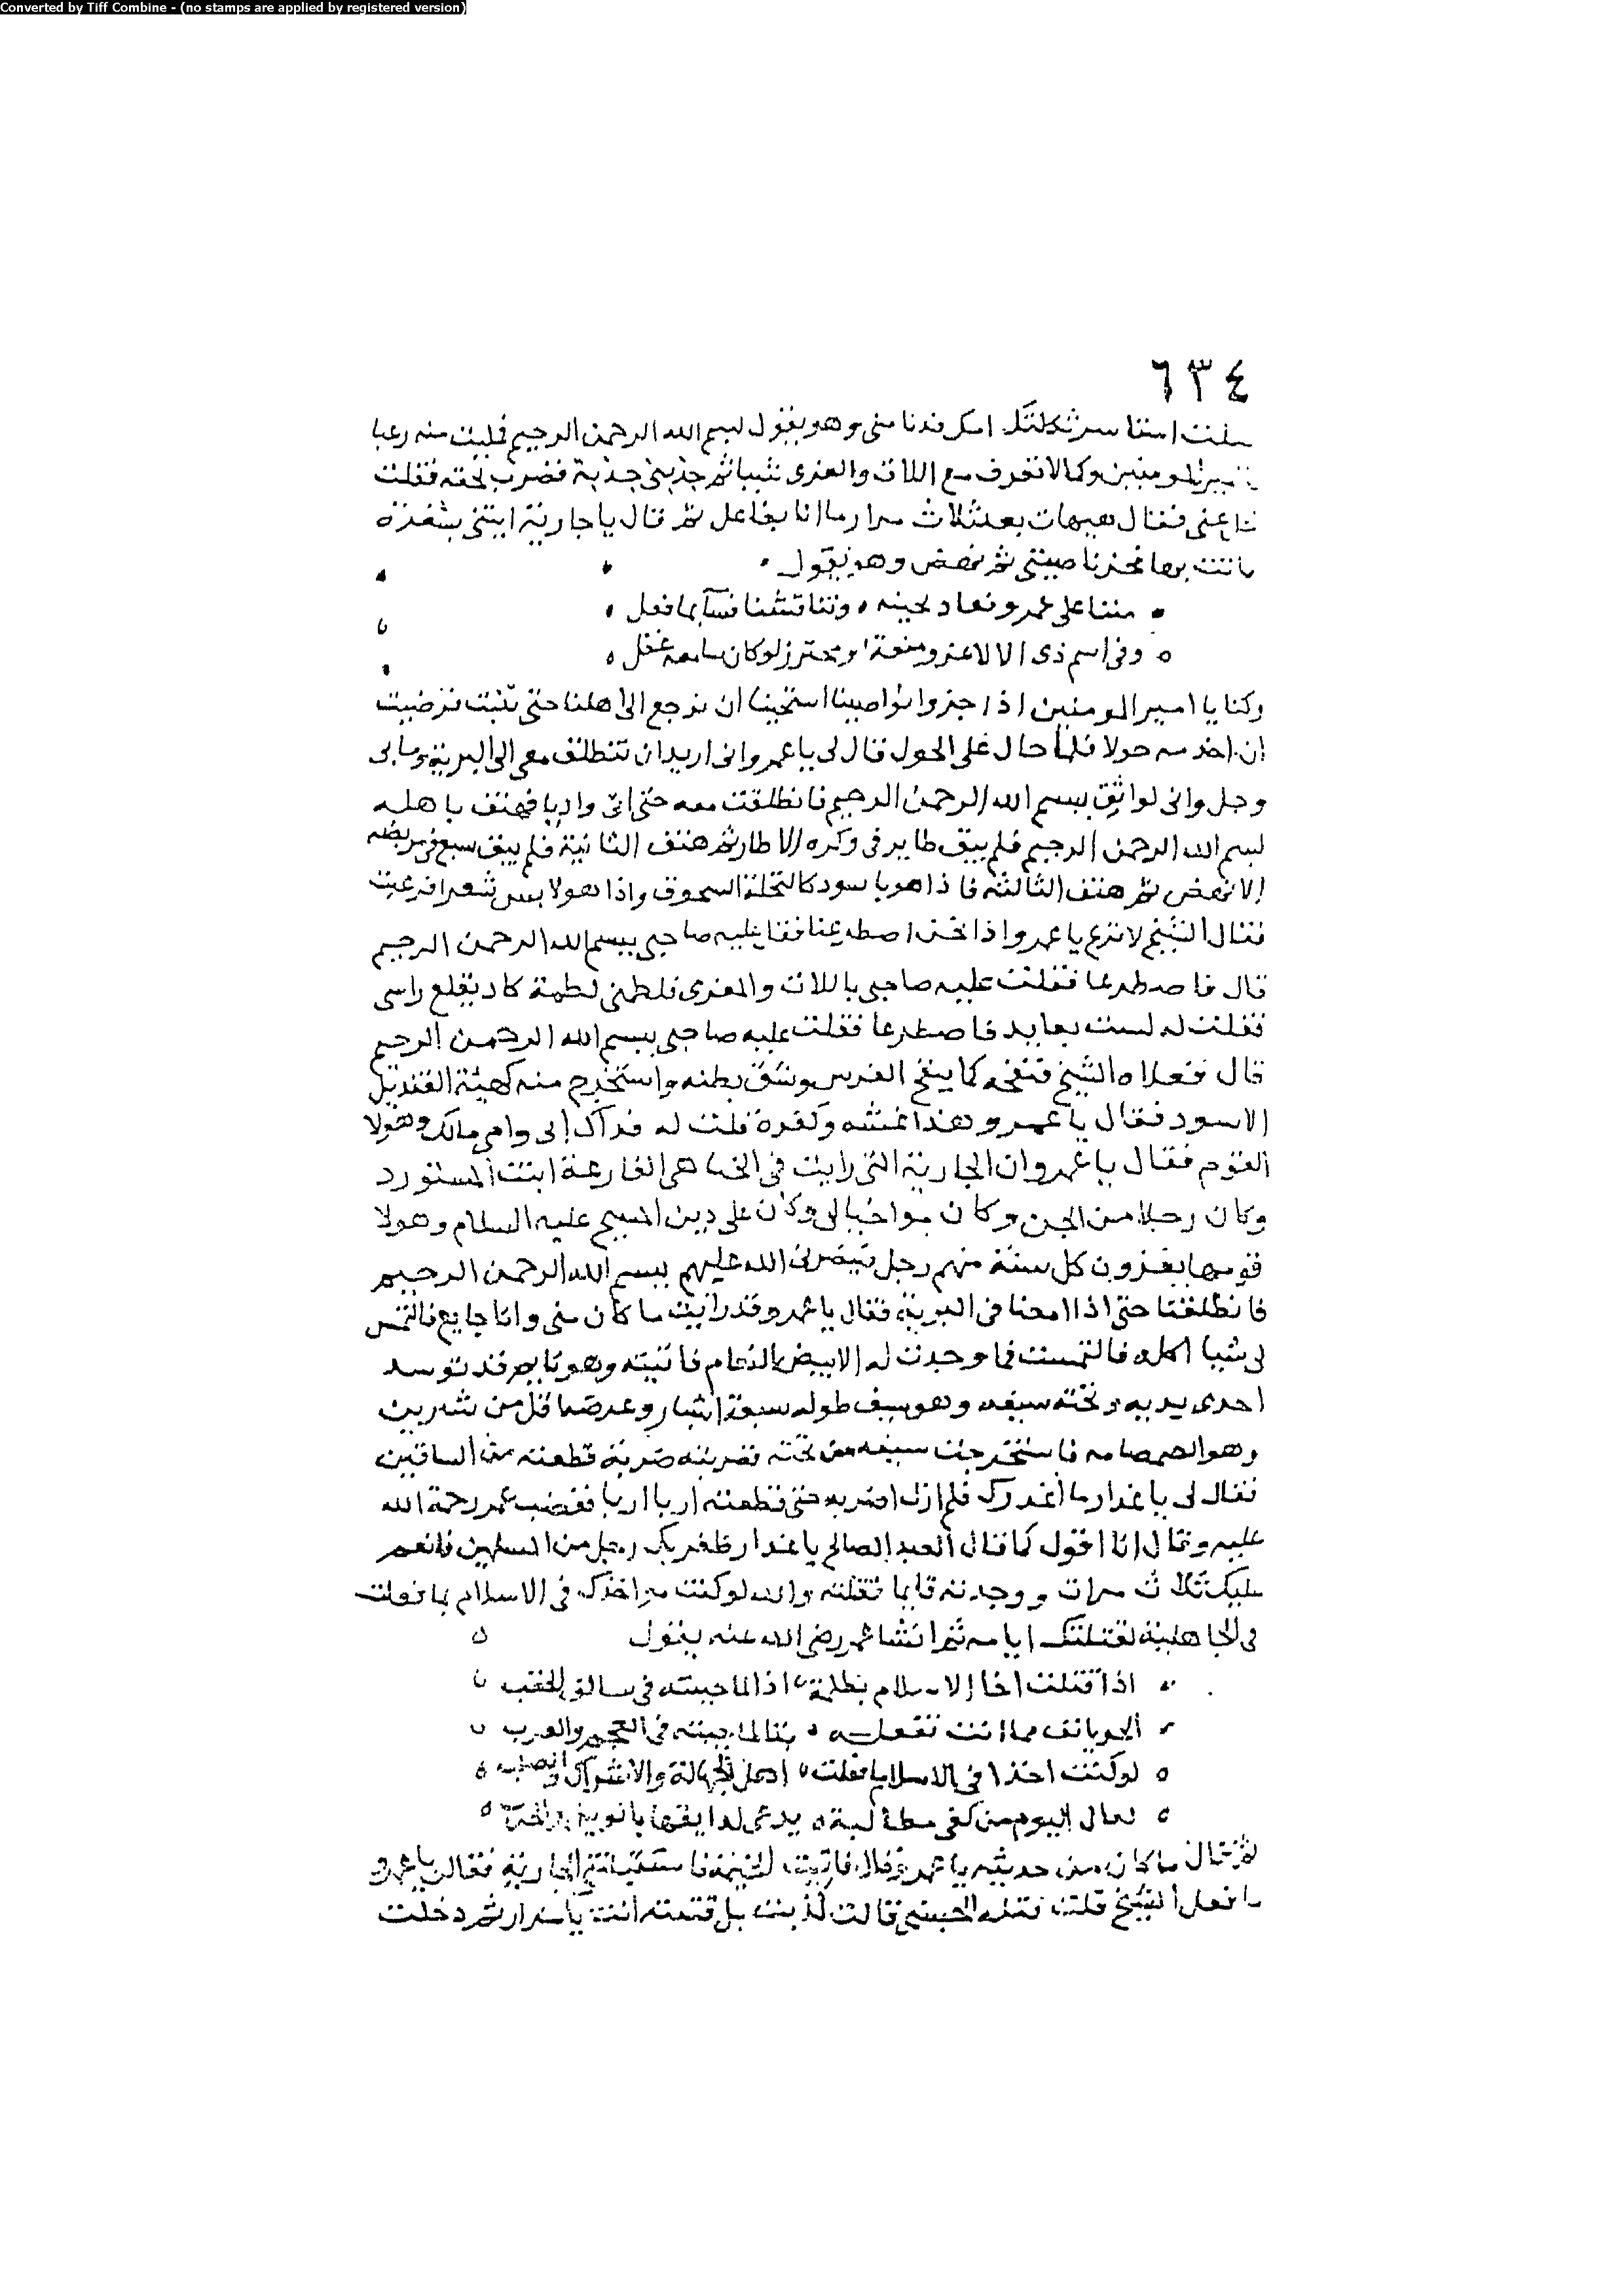 Converted by Tiff Combine - (no stamps are applied by registered version)
٦٣٤
استاسر ثكلتك امك فدنا منى وهو يقول بسم الله الرحمن الرحيم فمليت منه رعبا
يا امير المومنين وكنا لا نعرف مع اللات والعزى شيا ثم جذبنى جذبة فضرب تحته فقلت
عنى فقال هيهات بعد ثلاث مرار ما انا بفاعل ثم قال يا جارية ايتنى بشفرة
فاتت بها فجز ناصيتى ثم نهض وهو يقول
مننا على عمرو فعاد لحينه وثنا فثنينا فسآ بما فعل
وفى اسم ذى الالا عز ومنعة ومحترز لو كان سامعه غفل
وكنا يا امير المومنين اذا جزوا نواصينا استحينا ان نرجع الى اهلنا حتى تنبت فرضيت
ان اخدمه حولا فلما حال على الحول قال لى يا عمرو انى اريد ان تنطلق معى الى البرية وما بى
وجل وانى لواثق ببسم الله الرحمن الرحيم فانطلقت معه حتى اتى واديا فهتف باهله
بسم الله الرحمن الرحيم فلم يبق طاير فى وكره الا طار ثم هتف الثانية فلم يبق سبع فى مربضه
الا نهض ثم هتف الثالثة فاذا هو باسود كالنخلة السحوق واذا هو لابس شعرا فرعبت
فقال الشيخ لا ترع يا عمرو اذا نحن اصطرعنا فقل غلبه صاحبى ببسم الله الرحمن الرحيم
قال فاصطرعا فقلت غلبه صاحبى باللات والعزى فلطمنى لطمة كاد يقلع راسى
فقلت له لست بعايد فاصطرعا فقلت غلبه صاحبى ببسم الله الرحمن الرحيم
قال فعلاه الشيخ فنفحه كما ينفح الفرس وشق بطنه واستخرج منه كهيئة القنديل
الاسود فقال يا عمرو هذا غشه وكفره قلت له فداك ابى وامى مالك وهولا
القوم فقال يا عمرو ان الجارية التى رايت فى الخبا هى الفارعة ابنت المستورد
وكان رجلا من الجن وكان مواخيا لى وكان على دين المسيح عليه السلام وهولا
قومها يغزون كل سنة منهم رجل فينصرنى الله عليهم ببسم الله الرحمن الرحيم
فانطلقنا حتى اذا امعنا فى البرية فقال يا عمرو قد رايت ما كان منى وانا جايع فالتمس
لى شيا اكله فالتمست فما وجدت له الا بيض النعام فاتيته وهو نايم قد توسد
احدى يديه وتحته سيفه وهو سيف طوله سبعة اشبار وعرضه اقل من شبرين
وهو الصمصامه فاستخرجت سيفه من تحته فضربته ضربة قطعته من الساقين
فقال لى يا غدار ما اغدرك فلم ازل اضربه حتى قطعته اربا اربا فغضب عمر رحمة الله
عليه وقال انا اقول كما قال العبد الصالح يا غدار ظفر بك رجل من المسلمين فانعم
عليك ثلاث مرات ووجدته قايما فقتلته والله لو كنت مواخذك فى الاسلام بما فعلت
فى الجاهلية لقتلتك ايا مه ثم انشا عمر رضى الله عنه يقول
اذا قتلت اخا الاسلام بظلمة اذا لما جيته فى سالف الحقب
الحر يانف مما انت تفعله تبا لما جيته فى العجم والعرب
لو كنت اخذا فى الاسلام ما فعلت اهل الجهالة والاشراك والصلب
ثم قال ما كان من حديثه يا عمرو قال فاتيت الخيمة فاستقبلتنى الجارية فقالت يا عمرو
ما فعل الشيخ قلت قتله الحبشى قالت كذبت بل قتلته انت يا غدار ثم دخلت